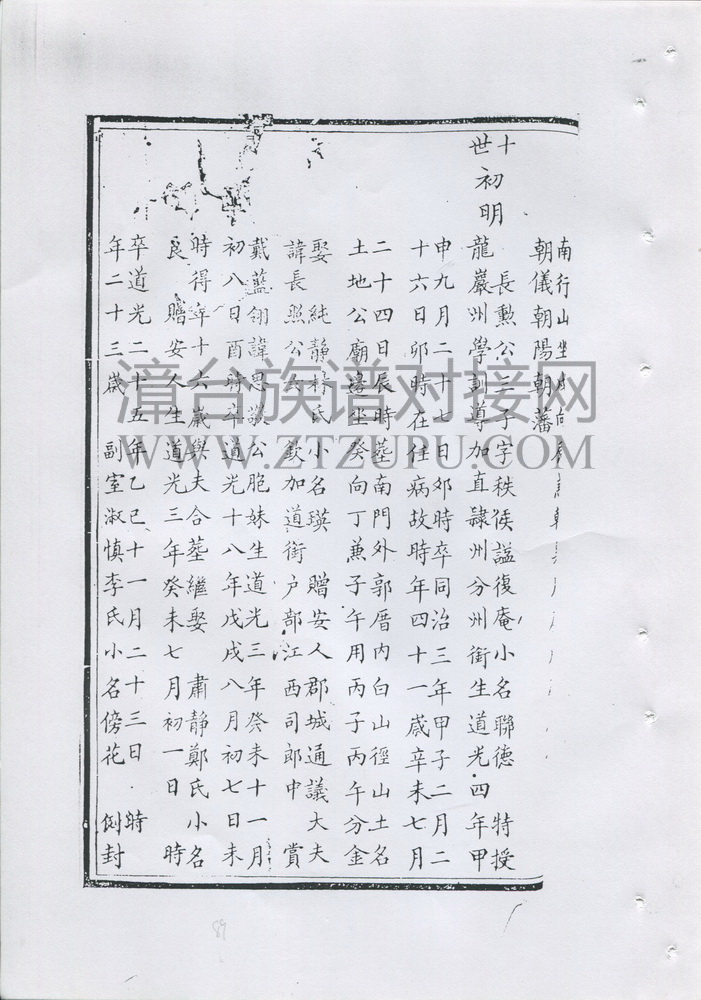 南行山坐
朝儀朝陽朝藩
十世
初明
長勳公三子字秩侯諡復庵小名聯德 特授
龍巖州學訓導加直隸州分州銜生道光四年甲
申九月二十七日卯時卒同治三年甲子二月二
十六日卯時在任病故時年四十一歲辛未七月
二十四日辰時塟南門外郭厝内白山徑山土名
土地公廟邊坐癸向丁兼子午用丙子丙午分金
娶 純靜林氏小名瑛 贈安人郡城通議大夫
諱長照公 欽加道銜户部江西司郎中 賞
戴藍翎諱思敬公胞妹生道光三年癸未十一月
初八日酉時卒道光十八年戊戌八月初七日未
時得年十六歲與夫合塟繼娶 肅静鄭氏小名
良 贈安人生道光三年癸未七月初一日 時
卒道光二十五年乙巳十一月二十三日 時
年二十三歲 副室淑慎李氏小名傍花 例封
漳台族谱对接网
WWW.ZTZUPU.COM
89